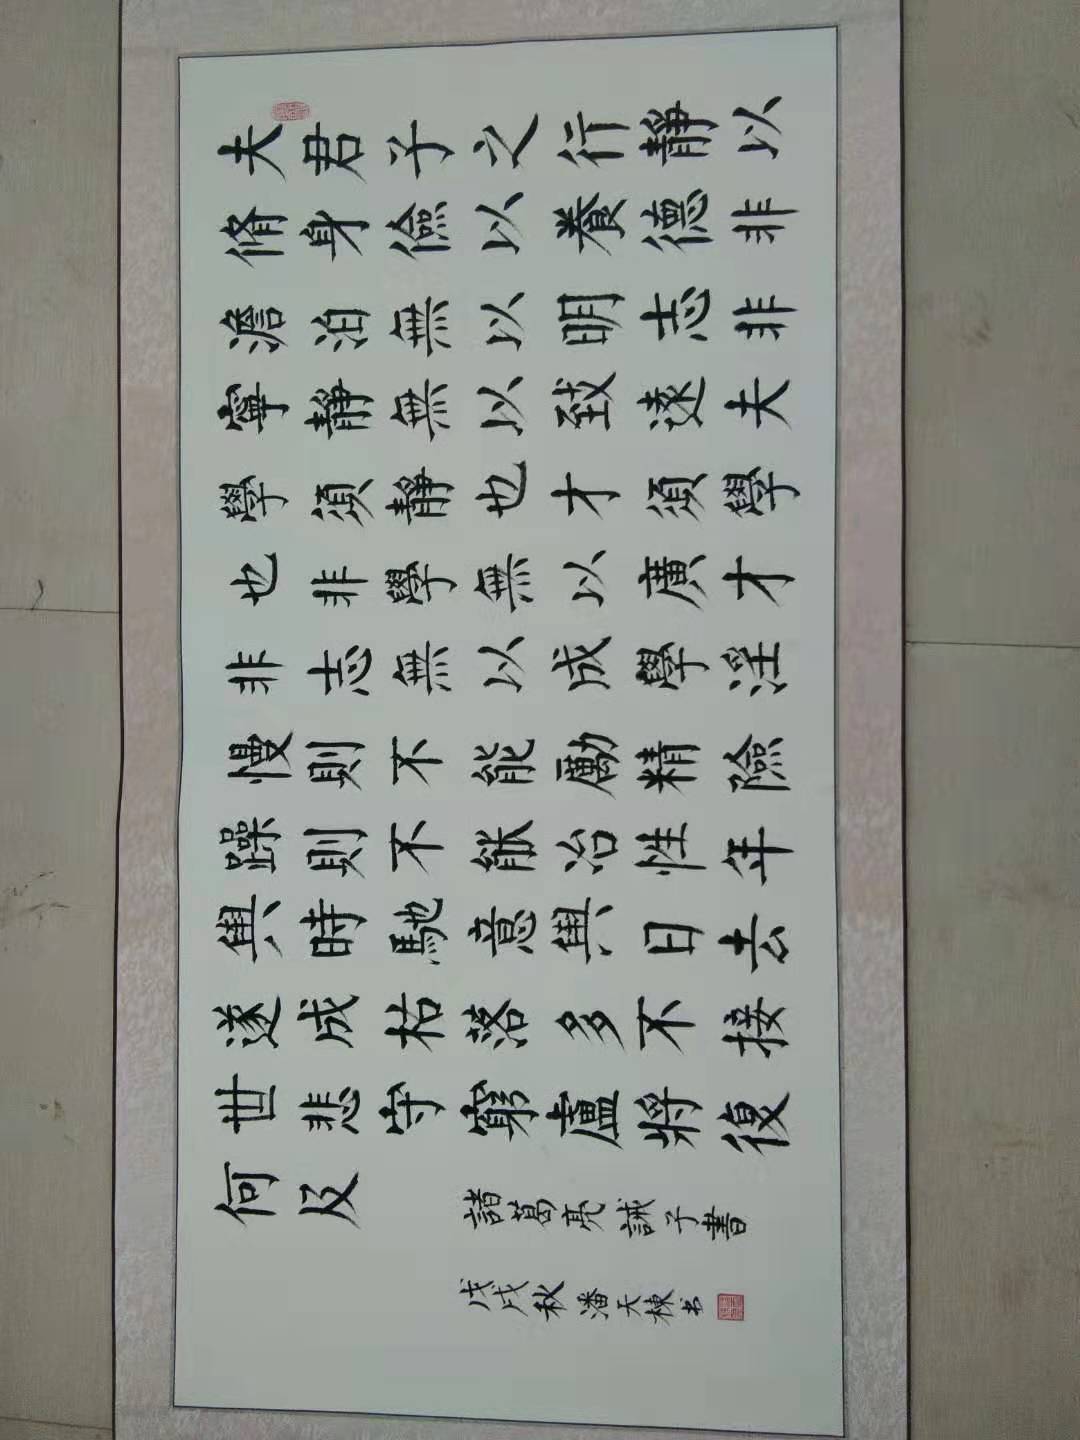 夫君子之行靜以
脩身儉以養德非
澹泊無以明志非
寧靜無以致遠夫
學須靜也才須學
也非學無以廣才
非志無以成學淫
慢則不能勵精險
躁則不能冶性年
與時馳意與日去
遂成枯落多不接
世悲守窮廬將復
何及
諸葛亮誡子書
戊戌秋潘天棟书